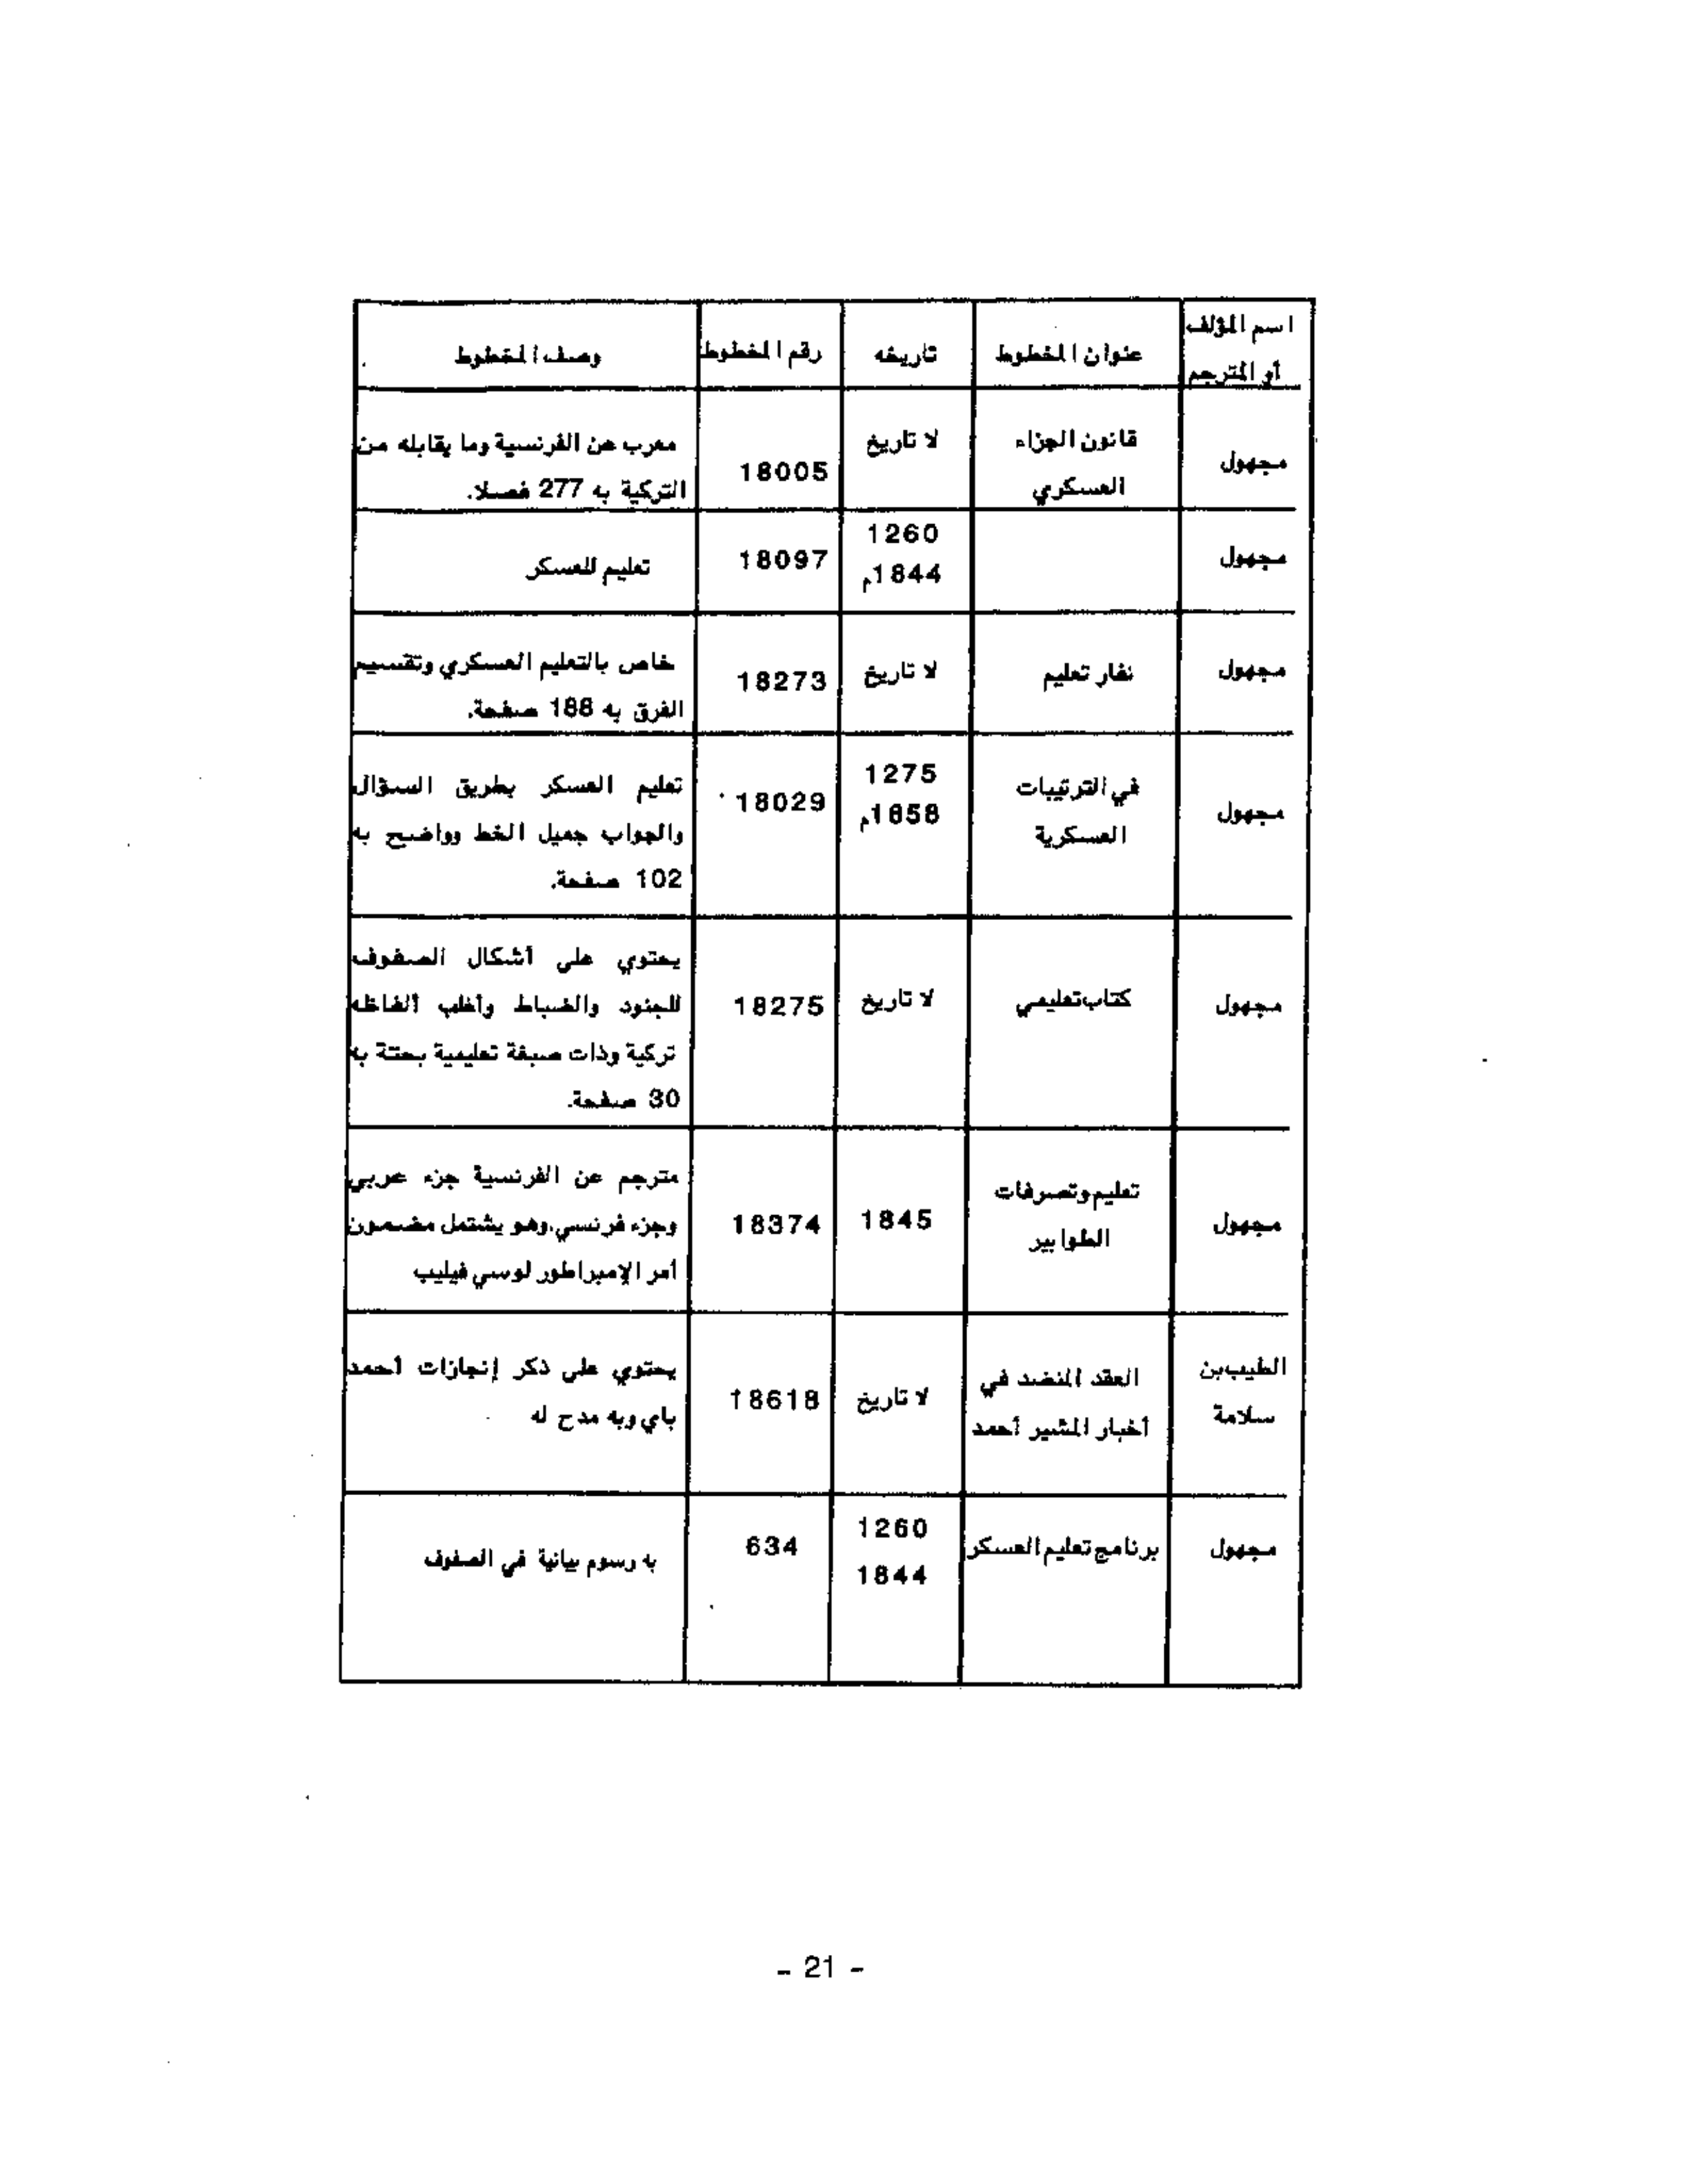 اسم المؤلف
أو المترجم
عنوان المخطوط
تاريخه
رقم المخطوط
وصف المخطوط
مجهول
قانون الجزاء
العسكري
لا تاريخ
18005
معرب عن الفرنسية وما يقابله من
التركية به 277 فصلا.
مجهول
1260
1844م
18097
تعليم للعسكر
مجهول
نفار تعليم
لا تاريخ
18273
خاص بالتعليم العسكري وتقسيم
الفرق به 188 صفحة.
مجهول
في الترتيبات
العسكرية
1275
1858م
18029
تعليم العسكر بطريق السؤال
والجواب جميل الخط وواضح به
102 صفحة.
مجهول
كتاب تعليمي
لا تاريخ
18275
يحتوي على أشكال الصفوف
للجنود والضباط وأغلب ألفاظه
تركية وذات صبغة تعليمية بحتة به
30 صفحة.
مجهول
تعليم وتصرفات
الطوابير
1845
18374
مترجم عن الفرنسية جزء عربي
وجزء فرنسي.وهو يشتمل مضمون
أمر الإمبراطور لوسي فيليب
الطيب بن
سلامة
العقد المنضد في
أخبار المشير أحمد
لا تاريخ
18618
يحتوي على ذكر إنجازات أحمد
باي وبه مدح له
مجهول
برنامج تعليم العسكر
1260
1844
634
به رسوم بيانية في الصفوف
- 21 -